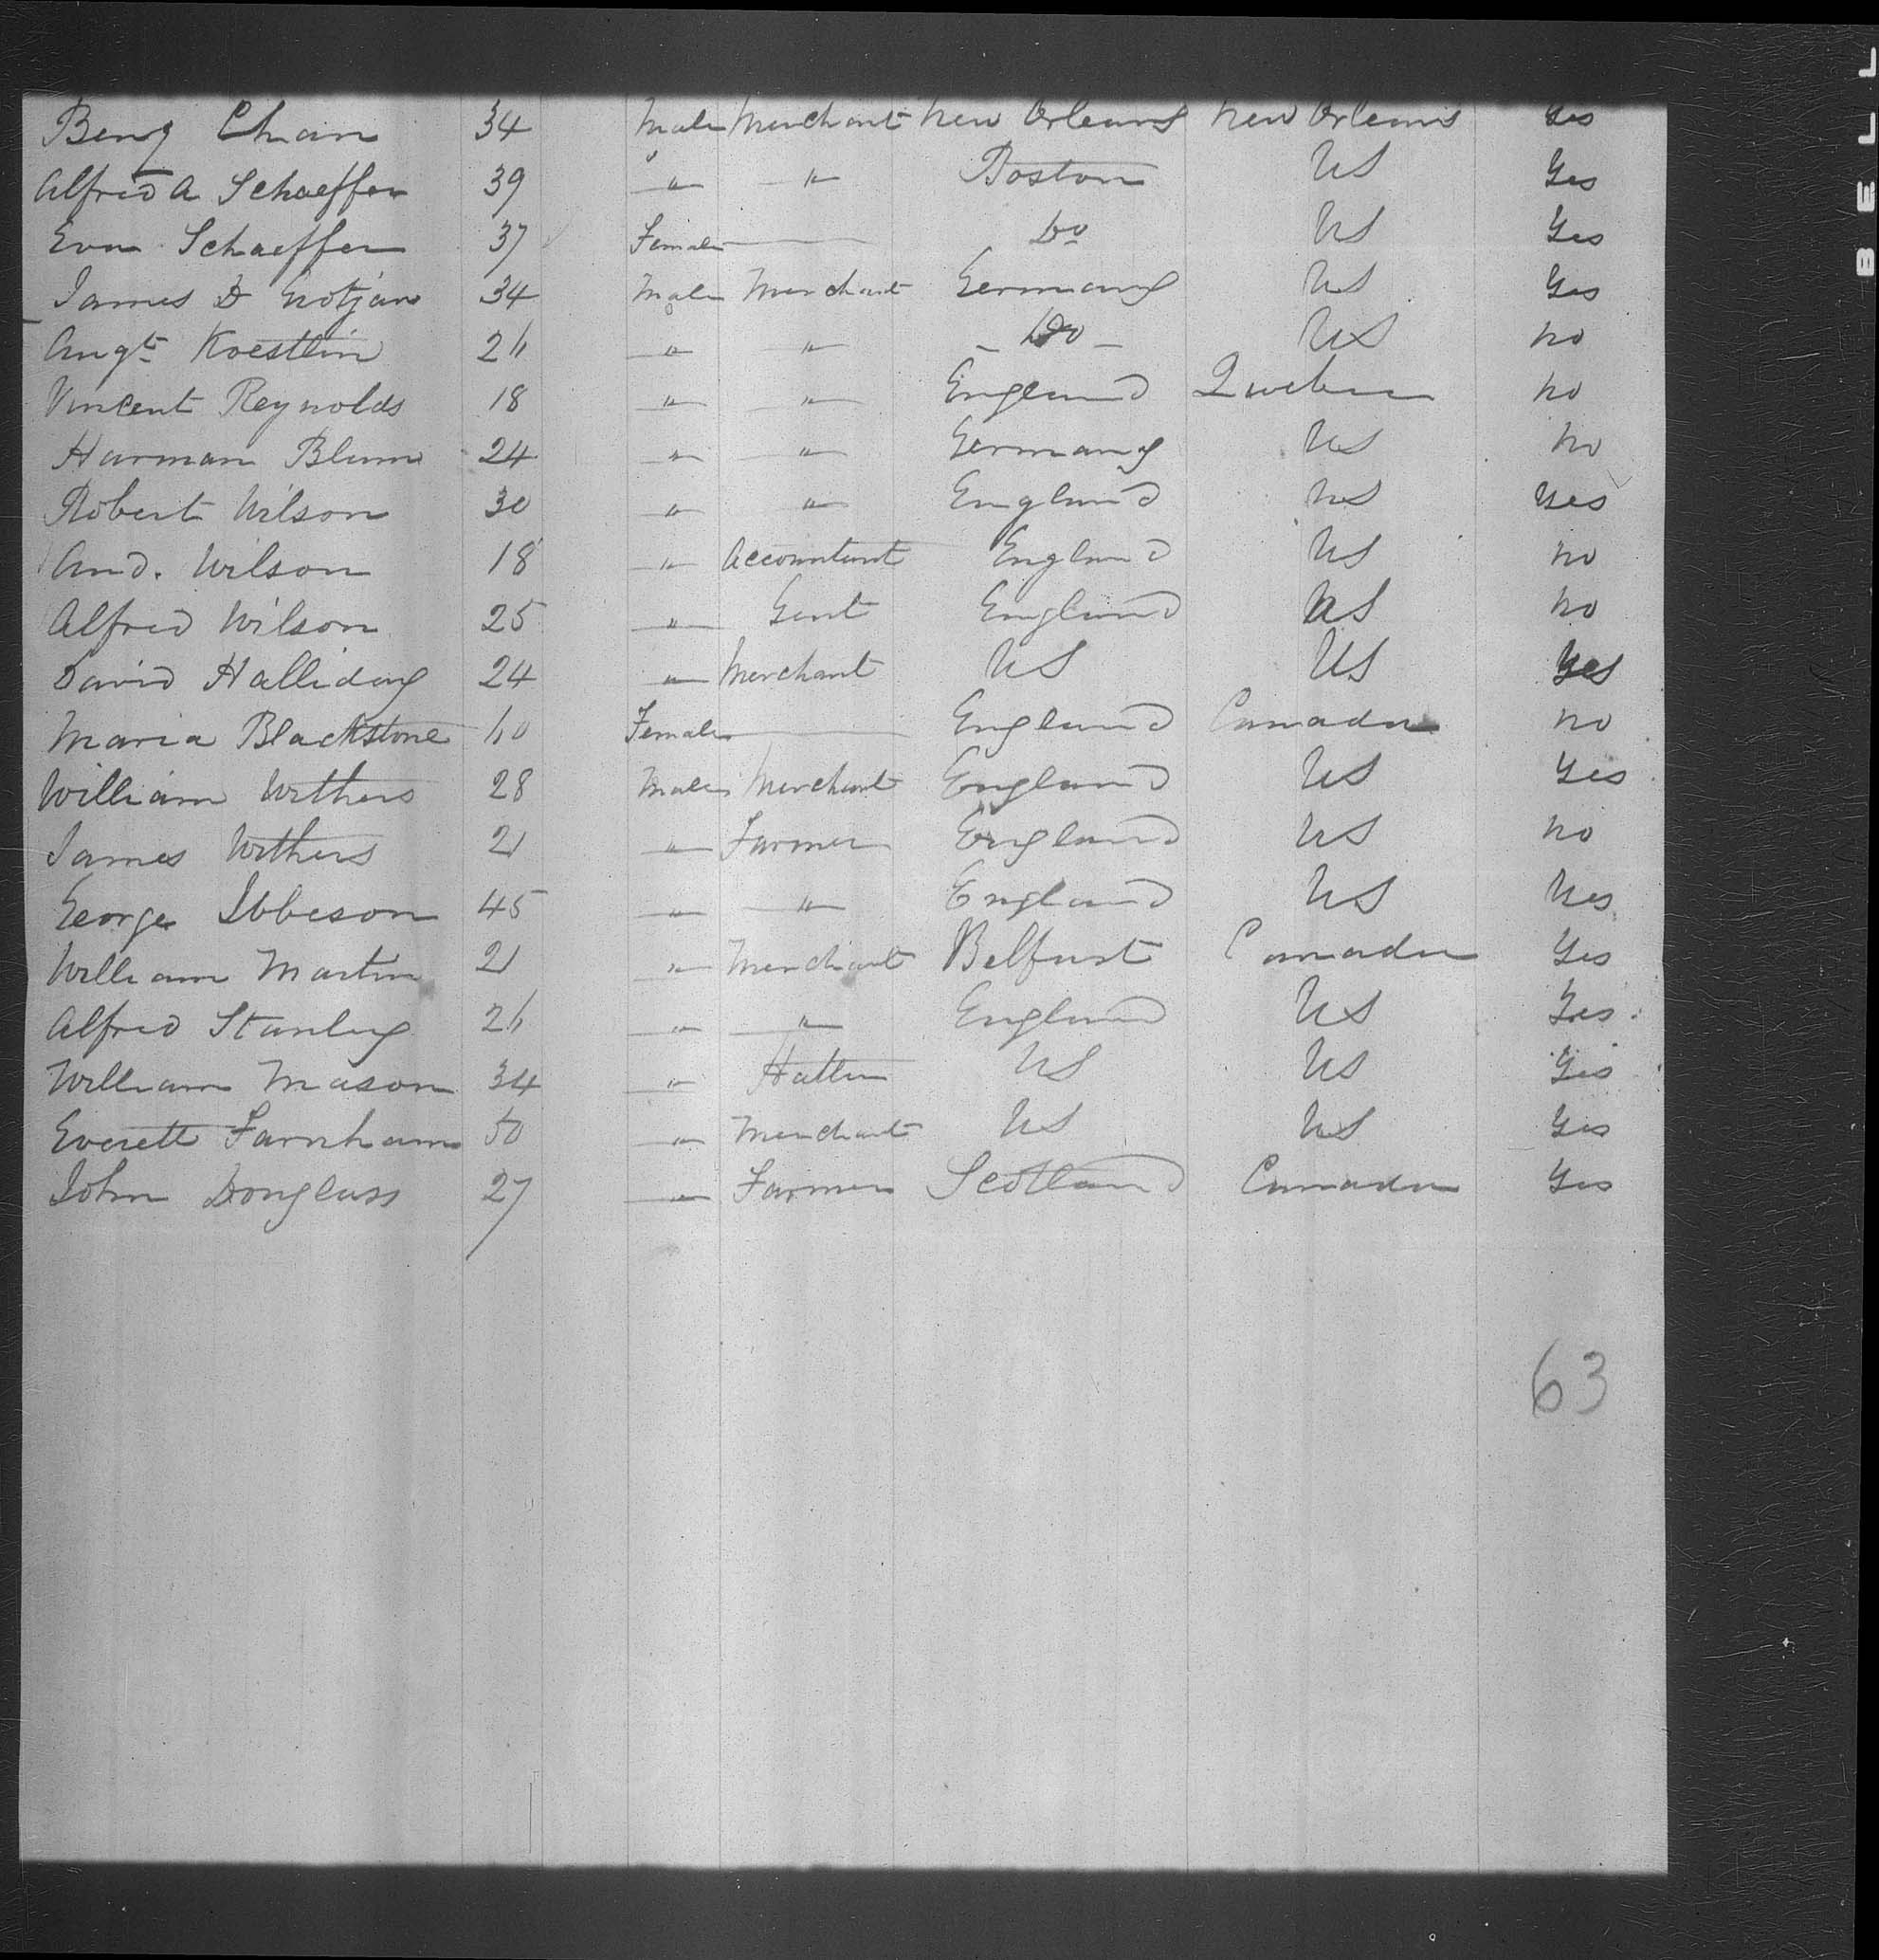 Benj Chan 34 Male Merchant New Orleans New Orleans Yes
Alfred A Schaeffer 39 " " Boston US Yes
Eva Schaeffer 37 Female — Do US Yes
James D 34 Male Merchant Germany US Yes
Augt Koestlin 26 " " Do US no
Vincent Reynolds 18 " " England Quebec no
Harman Blum 24 " " Germany US no
Robert Wilson 30 " " England US Yes
And. Wilson 18 " Accountant England US no
Alfred Wilson 25 " Gent England US no
David Halliday 24 " Merchant US US Yes
Maria Blackstone 60 Female — England Canada no
William Withers 28 Male Merchant England US Yes
James Withers 21 " Farmer England US no
George Ibbeson 45 " " England US Yes
William Martin 21 " Merchant Belfast Canada Yes
Alfred Stanley 26 " " England US Yes
William Mason 34 " Hatter US US Yes
Everett Farnham 50 " Merchant US US Yes
John Douglass 27 " Farmer Scotland Canada Yes
63
BELL